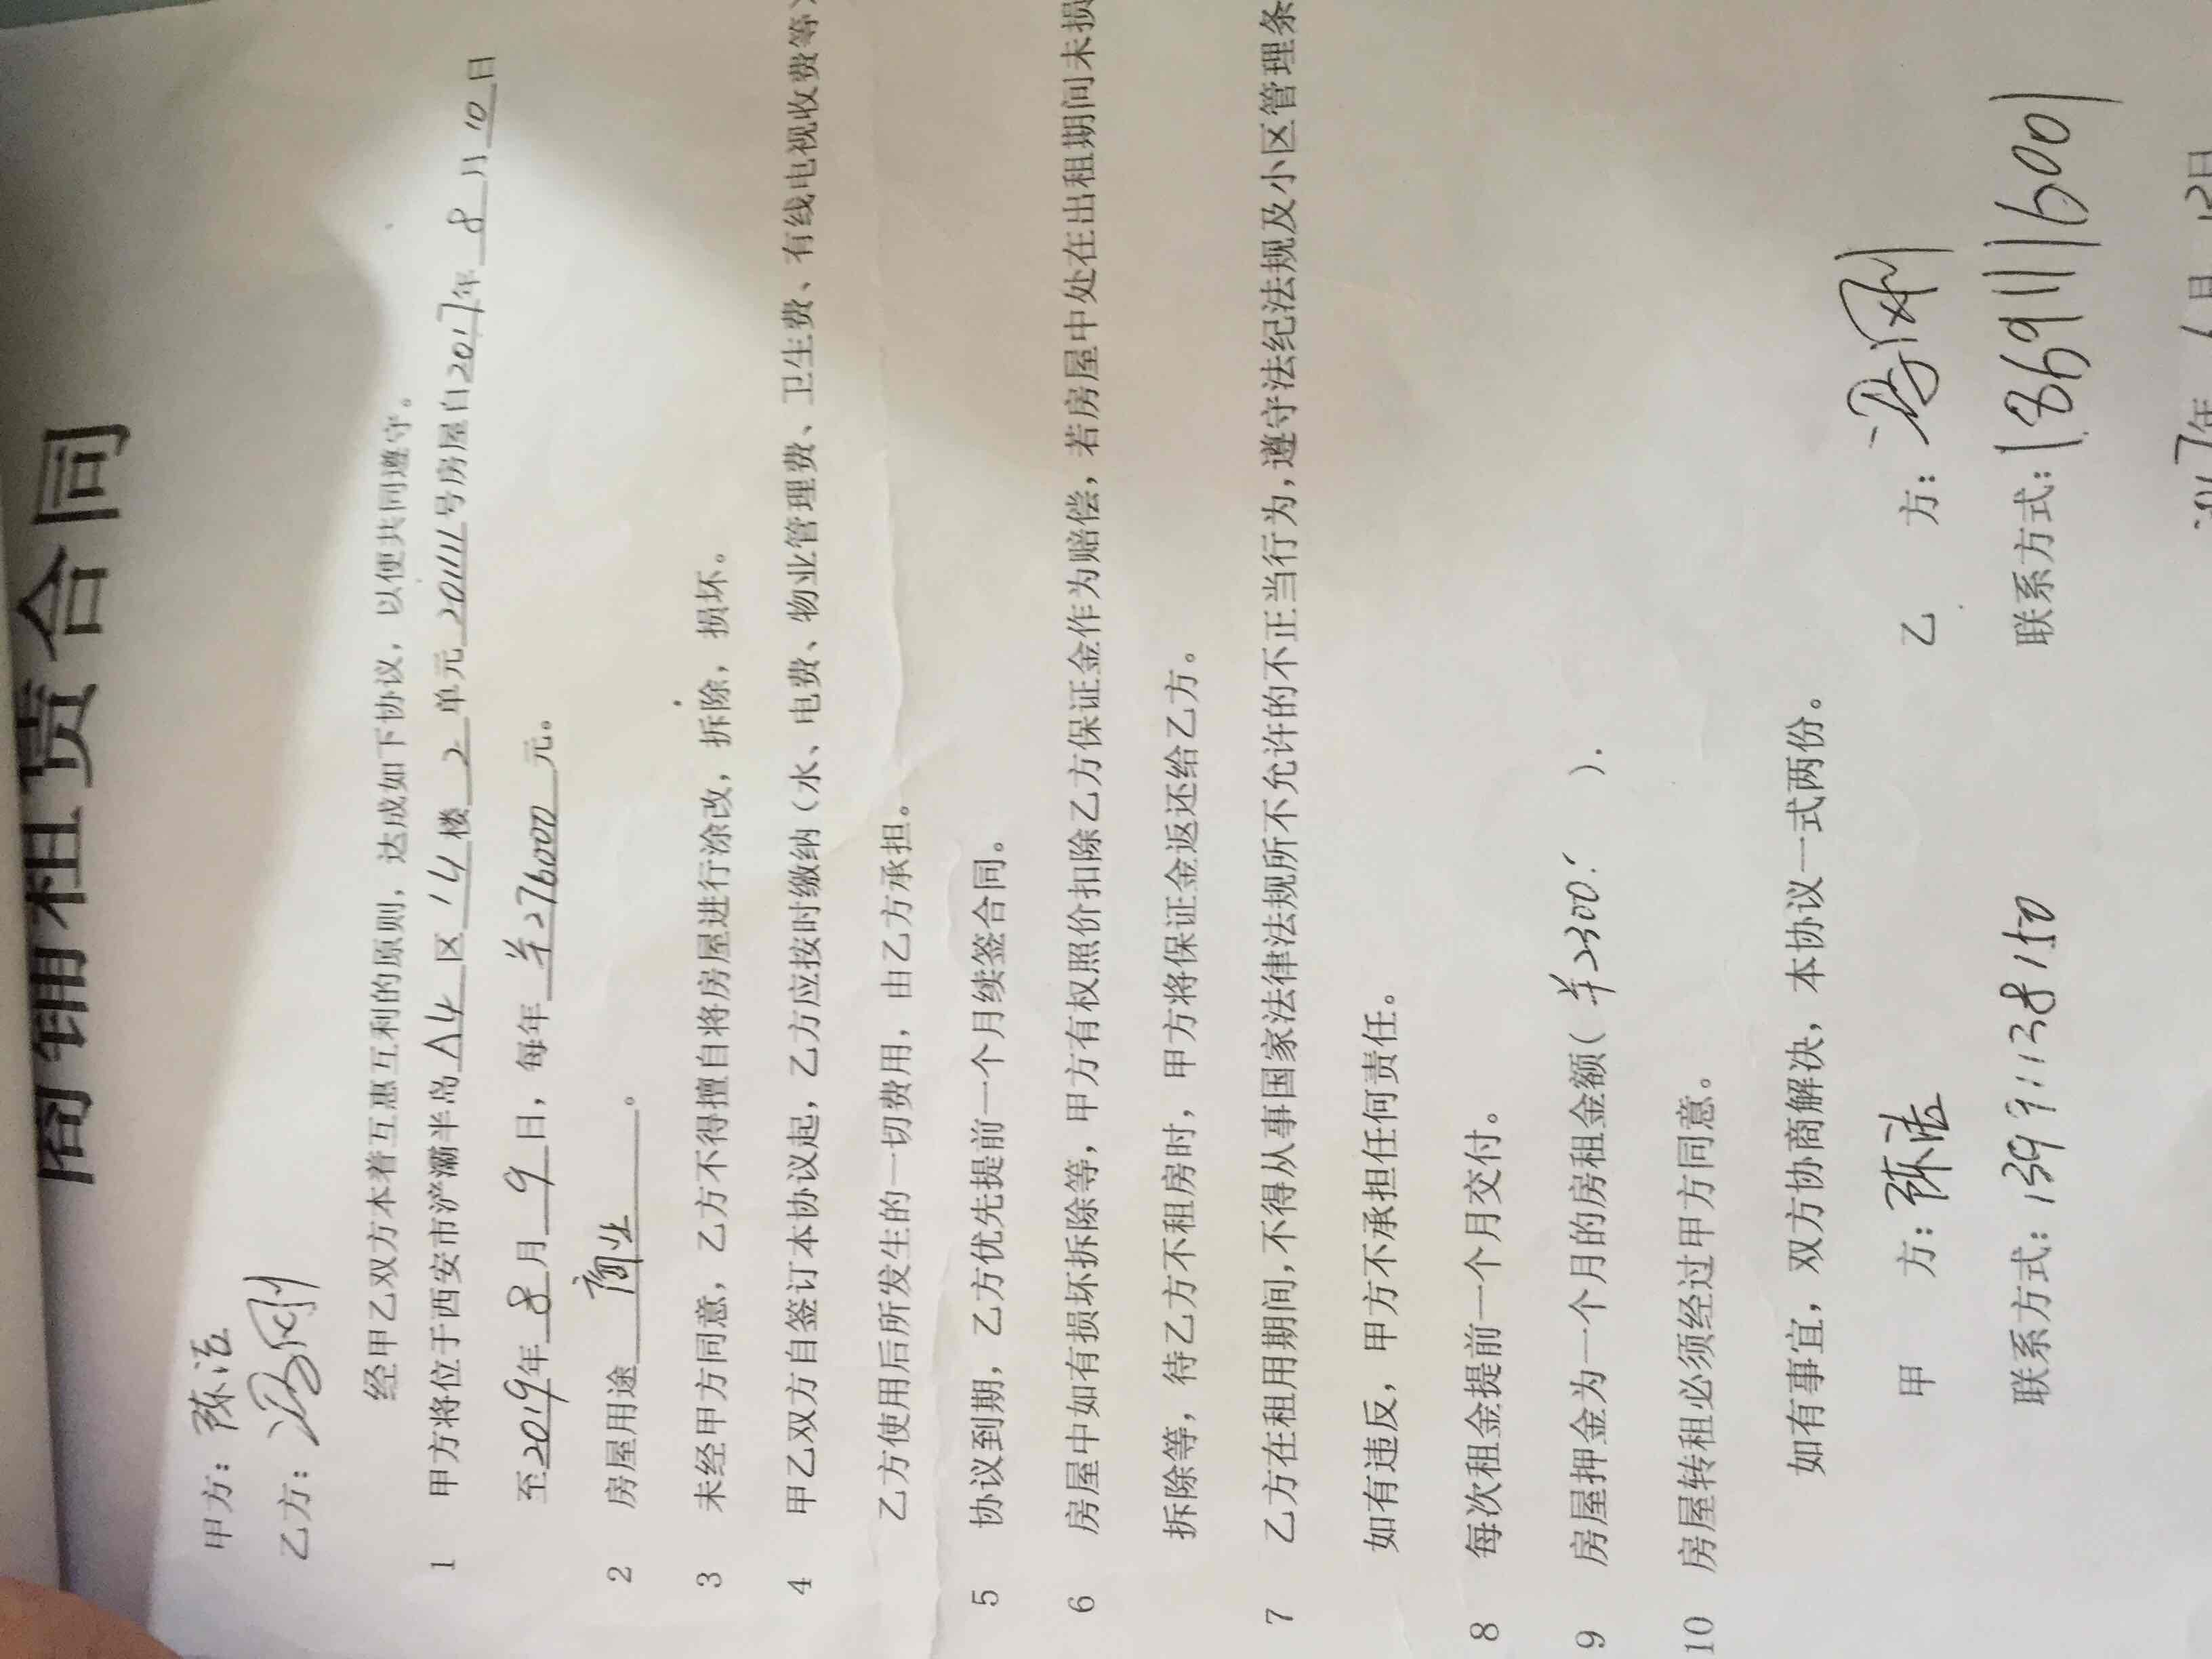 商铺租赁合同
甲方：陈洁
乙方：冯刚
经甲乙双方本着互惠互利的原则，达成如下协议，以便共同遵守。
1 甲方将位于西安市浐灞半岛A4区14楼2单元201111号房屋自2017年8月10日
至2019年8月9日，每年¥276000元。
2 房屋用途商业。
3 未经甲方同意，乙方不得擅自将房屋进行涂改，拆除，损坏。
4 甲乙双方自签订本协议起，乙方应按时缴纳（水、电费、物业管理费、卫生费、有线电视收费等）
乙方使用后所发生的一切费用，由乙方承担。
5 协议到期，乙方优先提前一个月续签合同。
6 房屋中如有损坏拆除等，甲方有权照价扣除乙方保证金作为赔偿，若房屋中处在出租期间未损
拆除等，待乙方不租房时，甲方将保证金返还给乙方。
7 乙方在租用期间，不得从事国家法律法规所不允许的不正当行为，遵守法纪法规及小区管理条
如有违反，甲方不承担任何责任。
8 每次租金提前一个月交付。
9 房屋押金为一个月的房租金额( ).
10 房屋转租必须经过甲方同意。
如有事宜，双方协商解决，本协议一式两份。
甲 方：陈洁 乙 方：冯刚
联系方式：13991138150 联系方式：18691116001
2017年 月 日